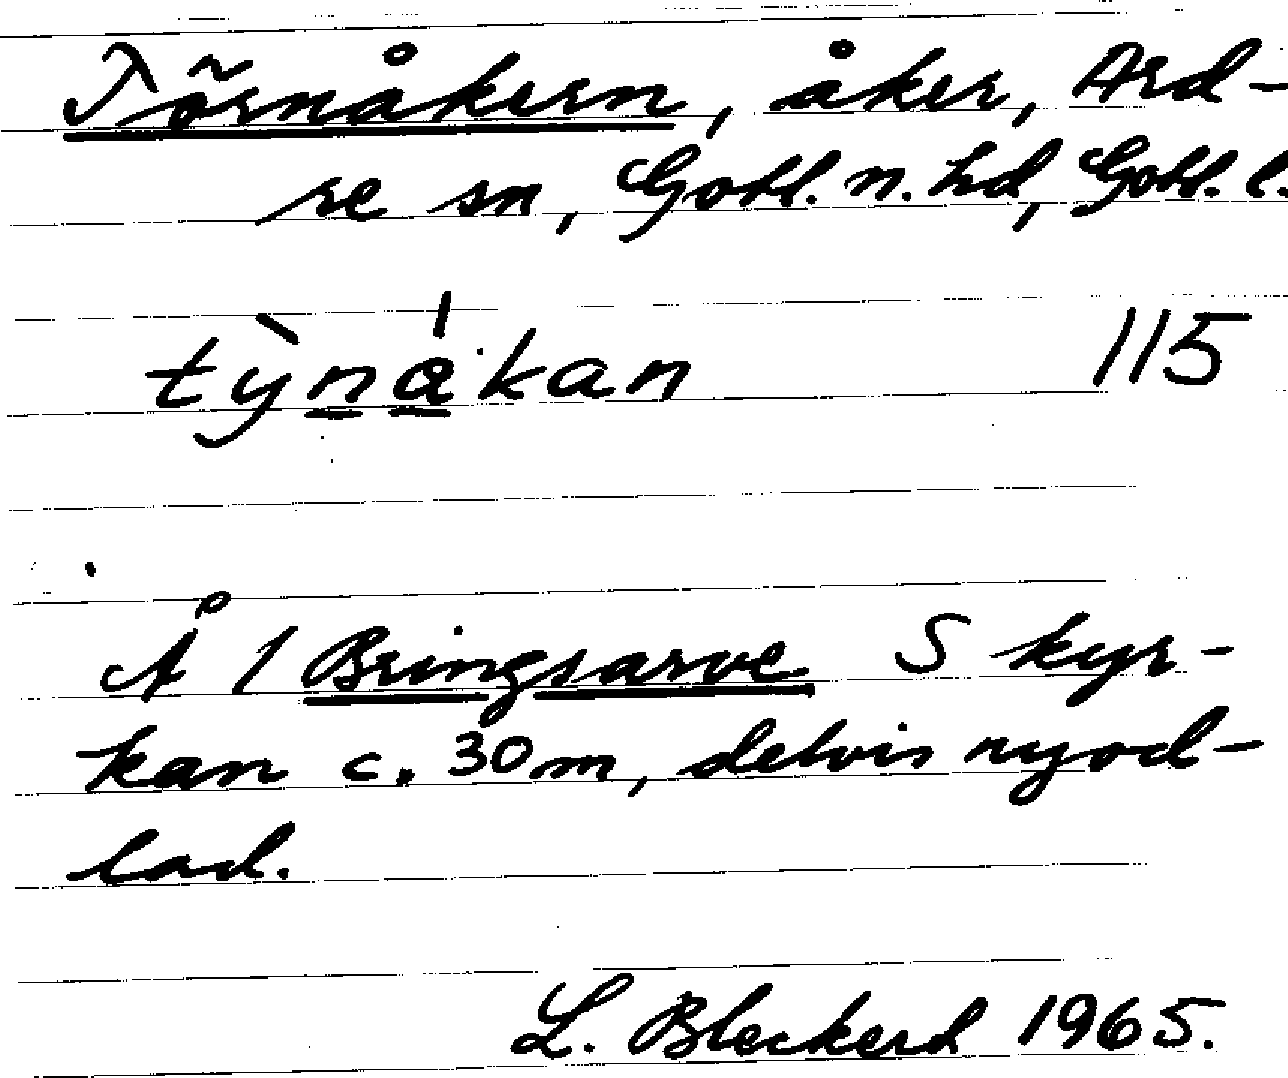 Törnåkern, åker, Ard-
re sn, Gotl. n. hd, Gotl. l.
tỳnákan 115
Å 1 Bringsarve S kyr-
kan c. 30 m, delvis nyod-
lad.
L. Bleckert 1965.